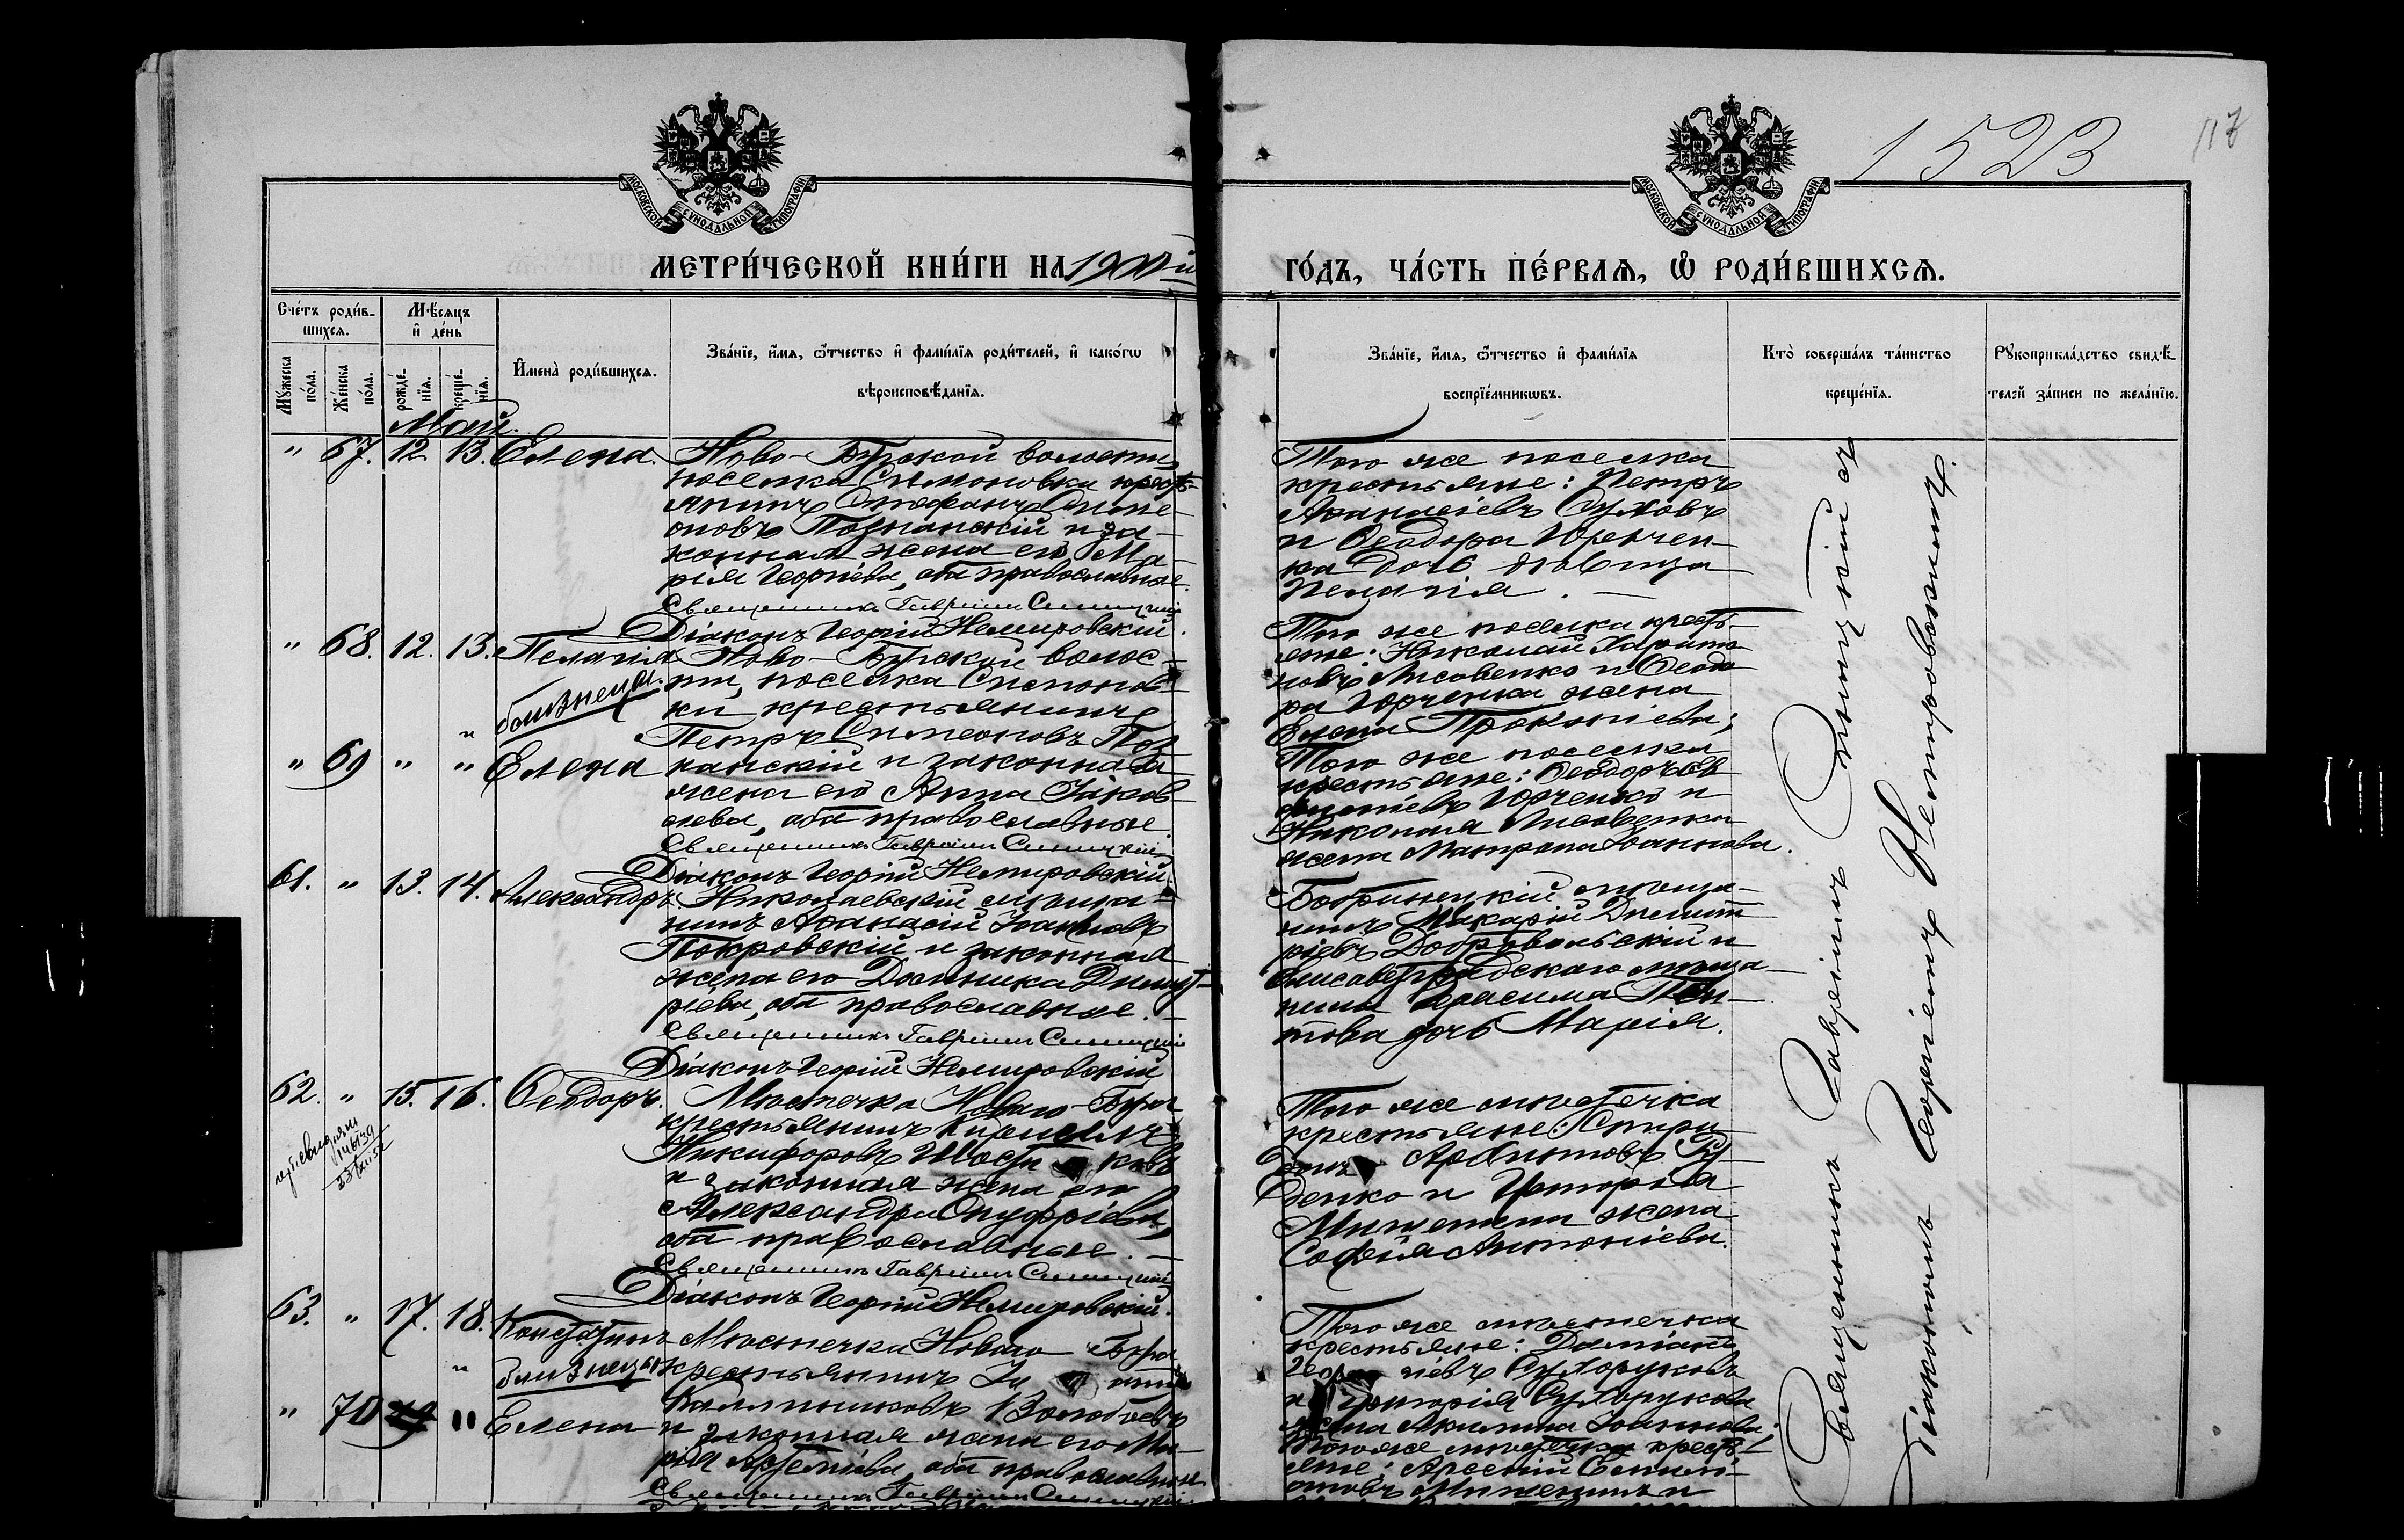 1523
117
МОСКОВСКОЙ СѴНОДАЛЬНОЙ ТИПОГРАФІИ
МОСКОВСКОЙ СѴНОДАЛЬНОЙ ТИПОГРАФІИ
МЕТРИ́ЧЕСКОЙ КНИ́ГИ НА 1900-й
ГО́ДЪ, ЧА́СТЬ ПЕ́РВАЯ, Ѽ РОДИ́ВШИХСЯ.
Сче́тъ роди́в-
шихся.
Мꙋжеска
по́ла.
Же́нска
по́ла.
Мѣсяцъ
и҆ де́нь
рожде́-
нїѧ.
креще́-
нїѧ.
И҆мена̀ роди́вшихсѧ.
Зва́нїе, и҆́мѧ, ѻ҆́тчество и҆ фами́лїѧ роди́телей, и҆ како́гѡ
вѣроисповѣ́данїѧ.
Зва́нїе, и҆́мѧ, ѻ҆́тчество и҆ фами́лїѧ
воспрїе́мникѡвъ.
Кто̀ соверша́лъ та́инство
креще́нїѧ.
Рꙋкоприкла́дство свидѣ́-
телей за́писи по жела́нїю.
Май.
" 67. 12. 13. Елена.
Ново-Бугской волости,
поселка Симоновки кресть-
янинъ Стефанъ Симе-
оновъ Познанскій и за-
конная жена его Ма-
рія Георгіева, оба православные.
Священникъ Гавріилъ Синицкій
Діаконъ Георгій Немировскій.
Того же поселка
крестьяне: Петръ
Афанасіевъ Суховъ
и Ѳеодора Юрчен-
ка дочь девица
Пелагія.
" 68. 12. 13. Пелагія
близнецы.
" 69 " " Елена
Ново-Бугской волос-
ти, поселка Симонов-
ки крестьянинъ
Петръ Симеоновъ Поз-
нанскій и законная
жена его Анна Іаков-
лева, оба православные.
Священникъ Гавріилъ Синицкій
Діаконъ Георгій Немировскій.
Того же поселка кресть-
яне: Николай Харито-
новъ Лисовенко и Ѳеодо-
ра Юрченка жена
Елена Прокопіева;
Того же поселка
крестьяне: Ѳеодоръ
Юрченко и
Николая Лисовенка
жена Матрона Іоаннова.
61. " 13. 14. Александръ.
Николаевскій мѣща-
нинъ Афанасій Іоанновъ
Покровскій и законная
жена его Домника Димит-
ріева, оба православные.
Священникъ Гавріилъ Синицкій
Діаконъ Георгій Немировскій
Бобринецкій мѣща-
нинъ Макарій Димит-
ріевъ Добровольскій и
Елисаветградскаго мѣща-
нина Герасима
дочь Марія.
62. " 15. 16. Ѳеодоръ.
Мѣстечка Новаго-Буга
крестьянинъ Кириллъ
Никифоровъ
и законная жена его
Александра Онуфріева,
оба православные.
Священникъ Гавріилъ Синицкій
Діаконъ Георгій Немировскій.
Того же мѣстечка
крестьяне: Спири-
донъ
денко и Григорія
Мишенина жена
Софія Антоніева.
63. " 17. 18. Константинъ
близнецы
" 70 " Елена
Мѣстечка Новаго Буга
крестьянинъ
Каллиниковъ
и законная жена его Ма-
рія Артеміева, оба православные
Священникъ Гавріилъ Синицкій
Того же мѣстечка
крестьяне: Даміанъ
Сухоруковъ
и Григорія Сухорукова
жена Акилина Іоаннова;
Того же мѣстечка кресть-
яне: Арсеній
Мишенинъ и
Священникъ Гавріилъ Синицкій съ
Діакономъ Георгіемъ Немировскимъ.